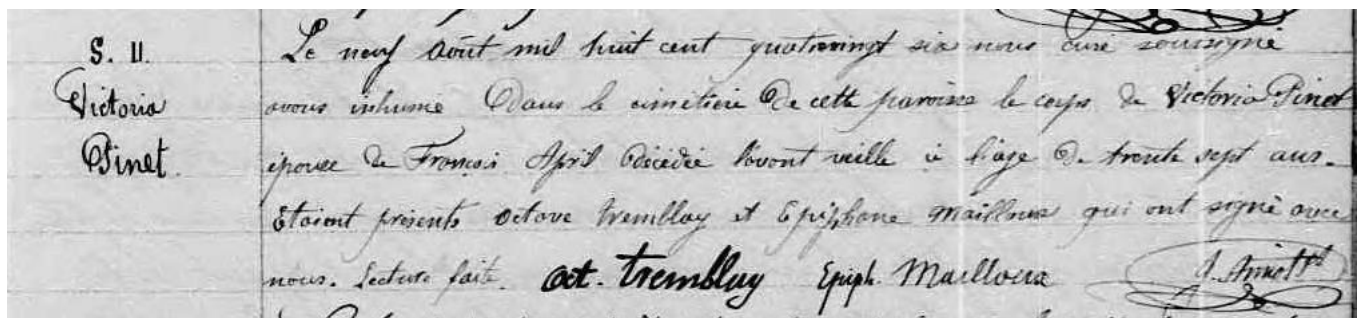 S. 11.
Victoria
Pinet.
Le neuf Août mil huit cent quatrevingt six nous curé soussigné
avons inhumé Dans le cimetière De cette paroisse le corps de Victoria Pinet
épouse de François April Décédée l'avant veille à l'age De trente sept ans.
Etaient présents Octave Tremblay et Epiphane Mailloux qui ont signé avec
nous. Lecture faite. Oct. Tremblay Epiph. Mailloux